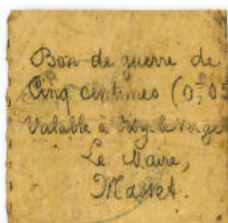 Bon de guerre de
Cinq centimes (0,05
Valable à
Le Maire,
Masset.